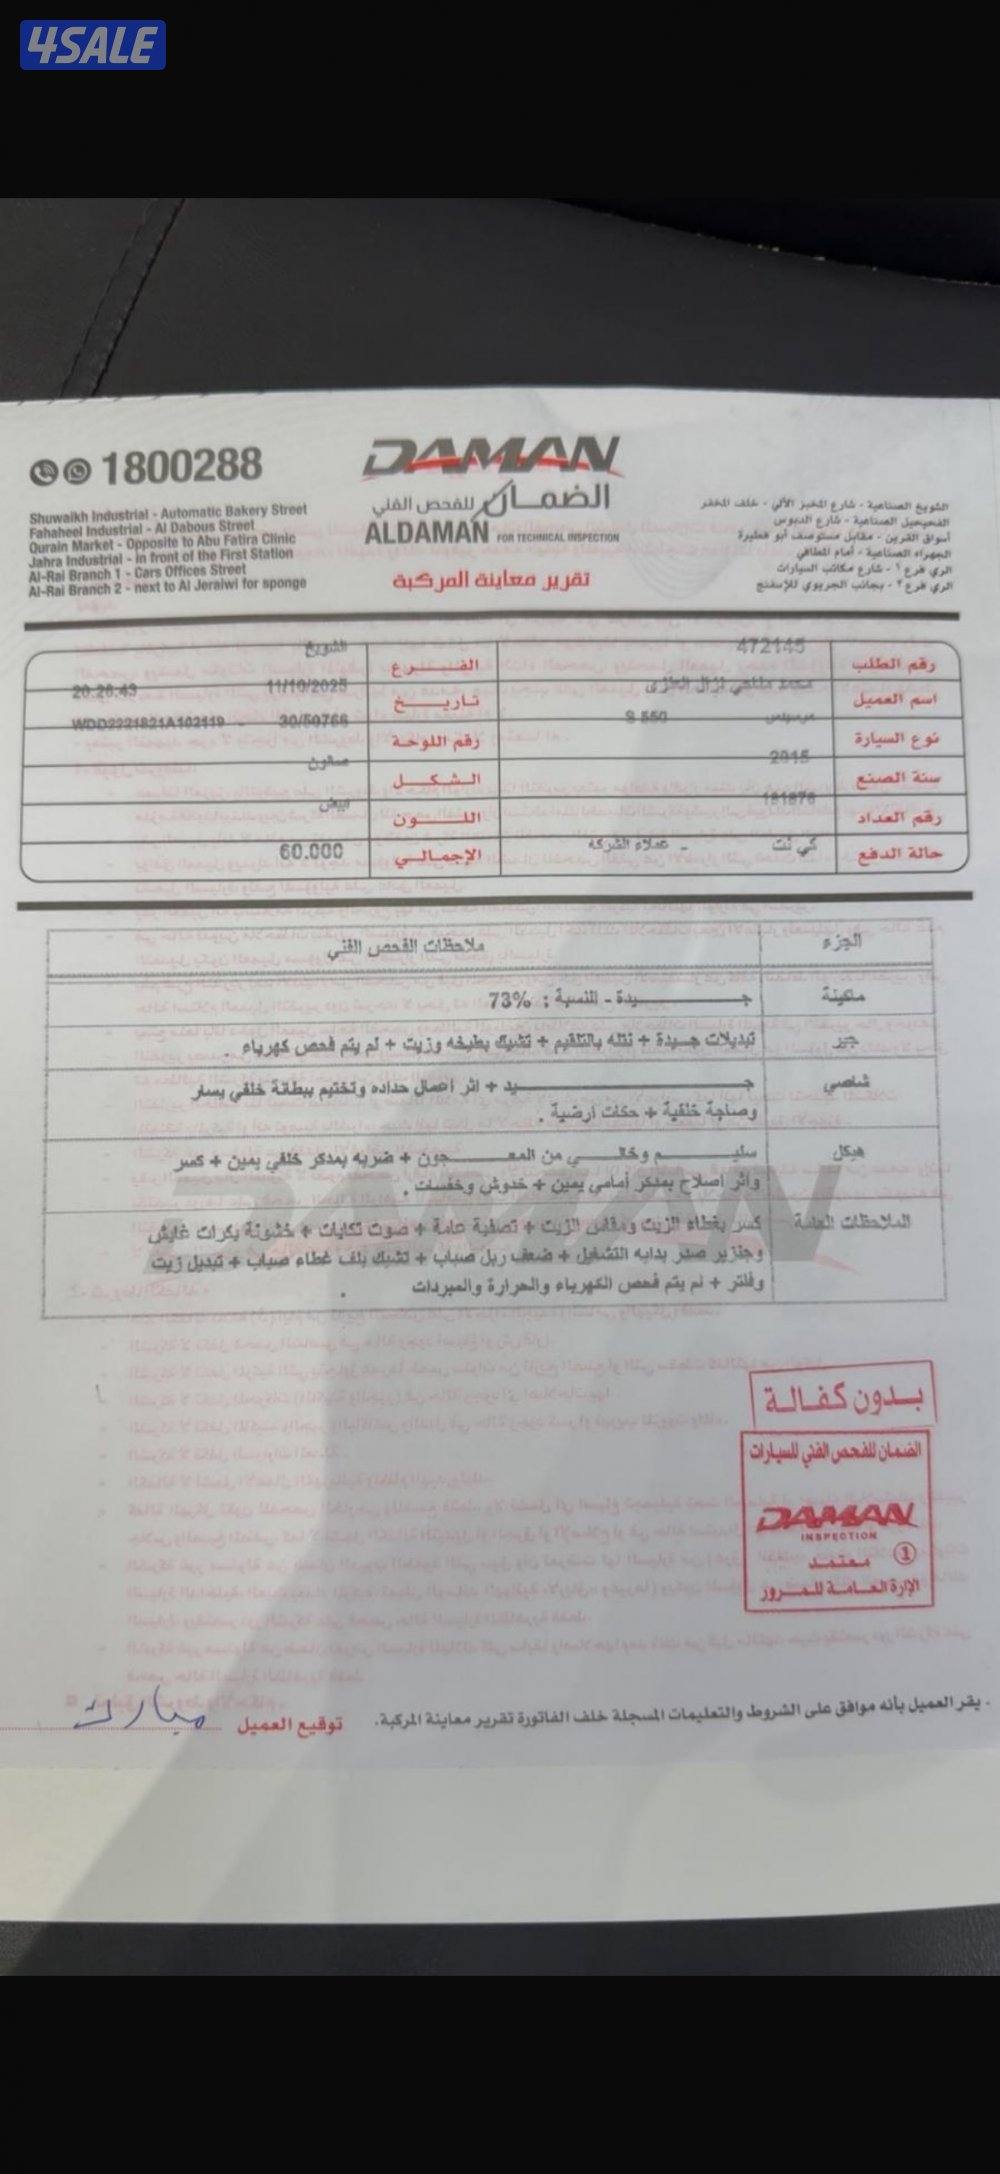 4SALE
1800288
Shuwaikh Industrial - Automatic Bakery Street
Fahaheel Industrial - Al Dabous Street
Qurain Market - Opposite to Abu Fatira Clinic
Jahra Industrial - in front of the First Station
Al-Rai Branch 1 - Cars Offices Street
Al-Rai Branch 2 - next to Al Jeraiwi for sponge
DAMAN
الضمان للفحص الفني
ALDAMAN FOR TECHNICAL INSPECTION
تقرير معاينة المركبة
الشويخ الصناعية - شارع المخبز الآلي - خلف المخفر
الفحيحيل الصناعية - شارع الدبوس
أسواق القرين - مقابل مستوصف أبو فطيرة
الجهراء الصناعية - أمام المطافي
الري فرع ١ - شارع مكاتب السيارات
الري فرع ٢ - بجانب الجريوي للإسفنج
رقم الطلب 472145 الفرع الشويخ
اسم العميل محمد تاريخ 11/10/2025 20:26:43
نوع السيارة مرسيدس S 550 رقم اللوحة 30/50766 - WDD2221821A102119
سنة الصنع 2015 الشكل صالون
رقم العداد 181876 اللون ابيض
حالة الدفع كي نت - عملاء الشركة الإجمالي 60.000
الجزء ملاحظات الفحص الفني
ماكينة جيدة - النسبة : 73%
جير تبديلات جيدة + نتله بالتلقيم + تشيك بطيخه وزيت + لم يتم فحص كهرباء .
شاصي جيد + اثر اعمال حداده وتختيم ببطانة خلفي يسار
وصاجة خلفية + حكات ارضية .
هيكل سليم وخالي من المعجون + ضربه بمدكر خلفي يمين + كسر
واثر اصلاح بمدكر أمامي يمين + خدوش وخفسات .
الملاحظات العامة كسر بغطاء الزيت ومقاس الزيت + تصفية عامة + صوت تكايات + خشونة بكرات غايش
وجنزير صدر بدايه التشغيل + ضعف ربل صباب + تشيك بلف غطاء صباب + تبديل زيت
وفلتر + لم يتم فحص الكهرباء والحرارة والمبردات .
بدون كفالة
الضمان للفحص الفني للسيارات
DAMAN
INSPECTION
معتمد 1
الإرة العامة للمرور
. يقر العميل بأنه موافق على الشروط والتعليمات المسجلة خلف الفاتورة تقرير معاينة المركبة. توقيع العميل مبارك